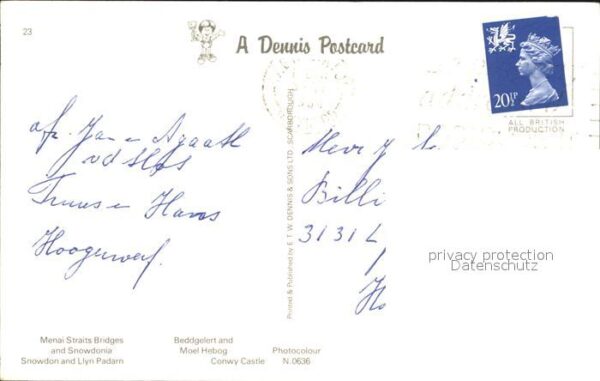 23
A Dennis Postcard
20½P
ALL BRITISH
PRODUCTION
afz. Jan en Agaath
vd
Truus en Hans
Hoogerwerf.
Printed & Published by E.T.W. DENNIS & SONS LTD., SCARBOROUGH
Billi
3131 L
Ho
privacy protection
Datenschutz
Menai Straits Bridges
and Snowdonia
Snowdon and Llyn Padarn
Beddgelert and
Moel Hebog
Conwy Castle
Photocolour
N.0636